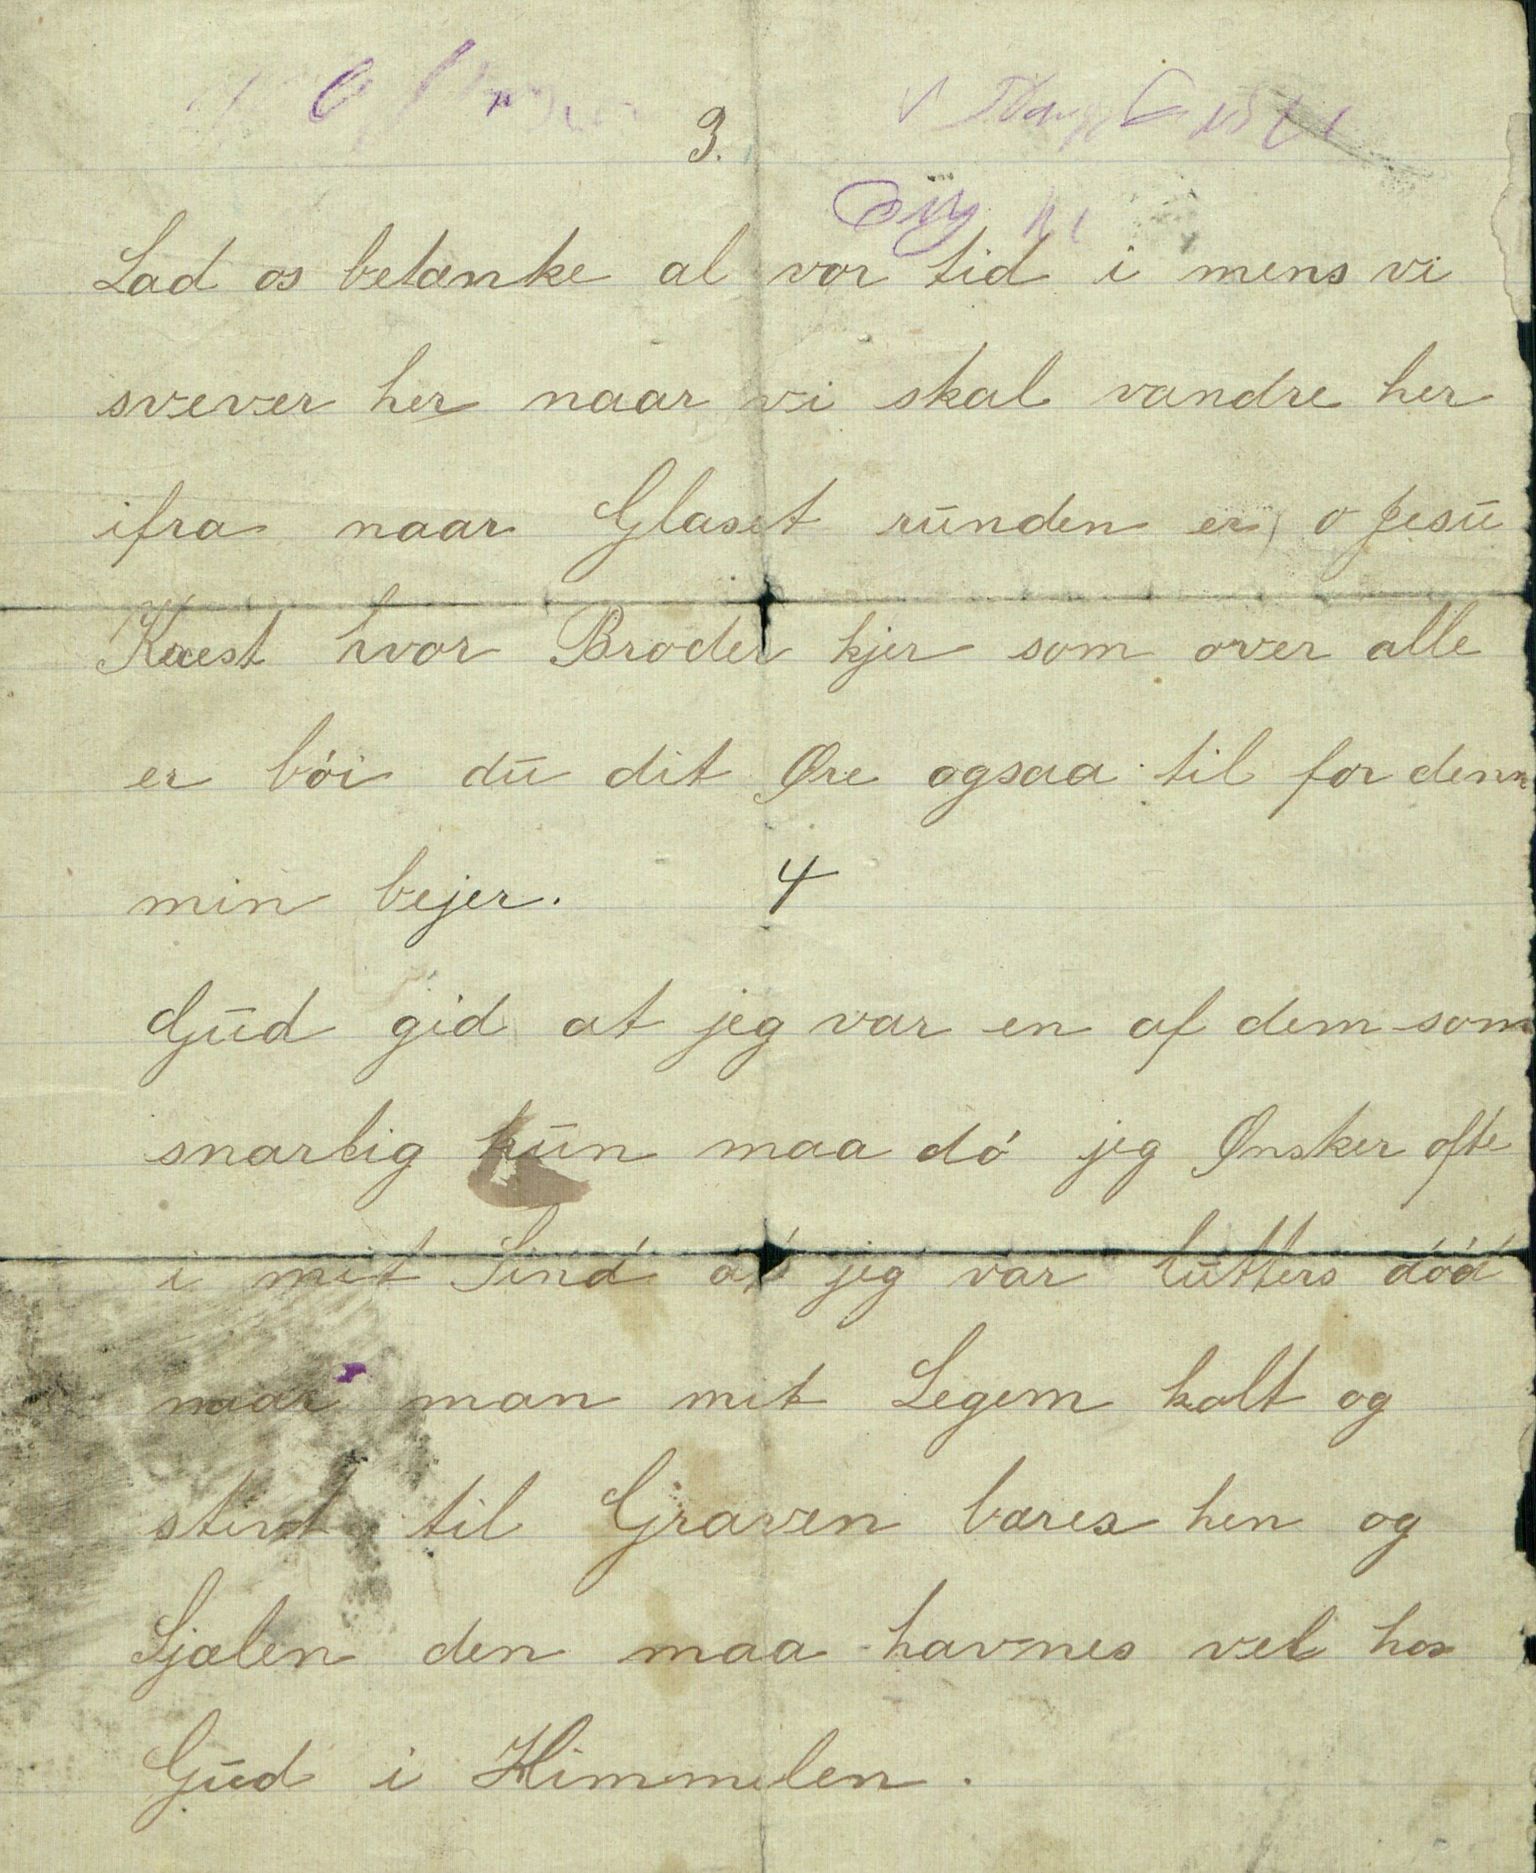 3.
Lad os betænke al vor tid i mens vi
svever her naar vi skal vandre her
ifra naar Glaset runden er, o Jesu
hvor Broder kjer som over alle
er bói du dit Øre ogsaa til for denne
min bejer. 4
Gud gid at jeg var en af dem som
snarlig kun maa dó jeg Ønsker ofte
i mit Sind at jeg var lutters dód
naar man mit Legem kolt og
stivt til Graven bæres hen og
Sjælen den maa havnes vel hos
Gud i Himmelen.